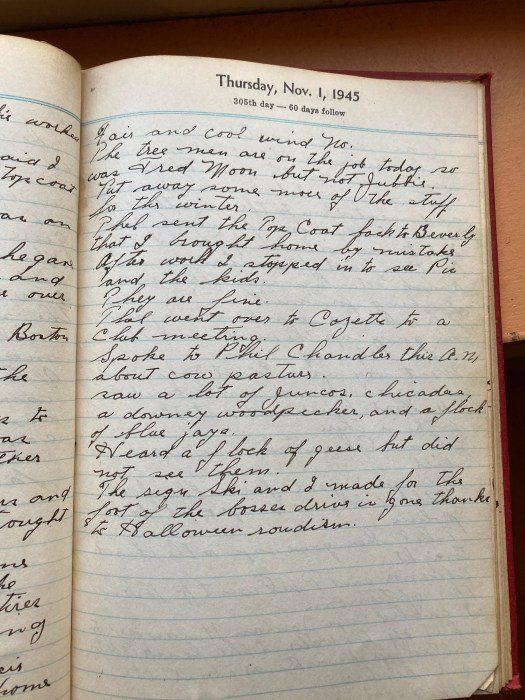 ie worke
aid I
top coat
as an
he gave
and
e over
Boston
the
s to
as
ther
m and
ought
ens
he
tires
ng
cis
home
Thursday, Nov. 1, 1945
305th day — 60 days follow
Fair and cool wind No.
The tree men are on the job today so
was Fred Moon but not
Put away some more of the stuff
for the winter.
Phel sent the Top Coat back to Beverly
that I brought home by mistake
After work I stopped in to see Pie
and the kids.
They are fine.
Phel went over to Cozette to a
Club meeting.
Spoke to Phil Chandler this A.M
about cow pasture.
saw a lot of Juncos, chicadees,
a downey woodpecker, and a flock
of blue jays.
Heard a flock of geese but did
not see them.
The sign Ski and I made for the
foot of the bosses drive is gone thanks
to Halloween roudism.